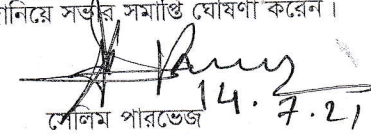 নিয়ে সভার সমাপ্তি ঘোষণা করেন।
14.7.21
সেলিম পারভেজ